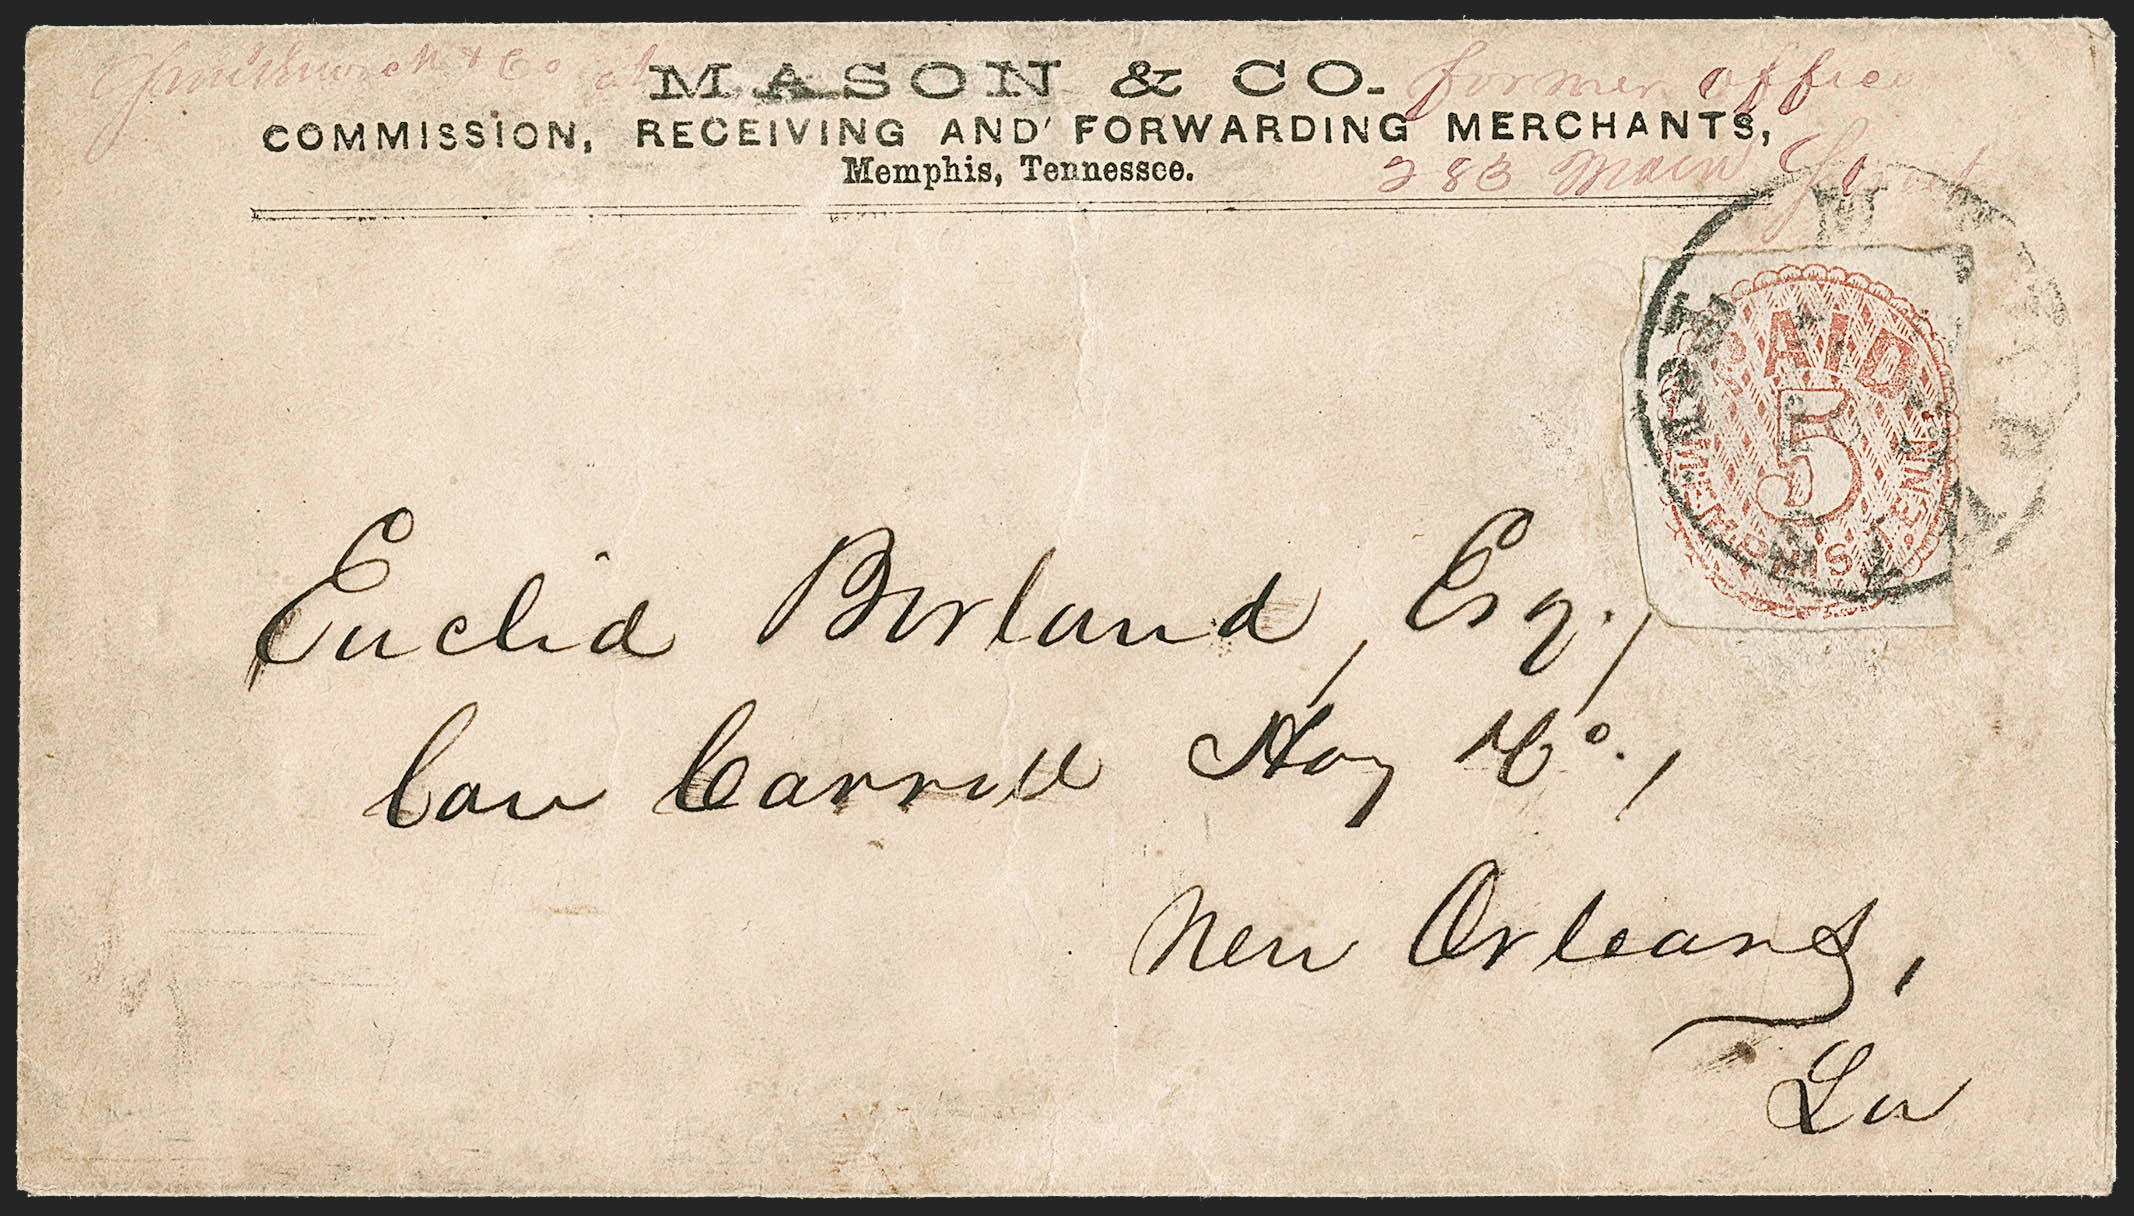 & Co at
MASON & CO.
former office
COMMISSION, RECEIVING AND FORWARDING MERCHANTS,
Memphis, Tennessee.
283 Main Street
PAID
5
MEMPHIS, TENN.
Euclid Borland, Esq.,
Care Carroll Hoy & Co.,
New Orleans,
La